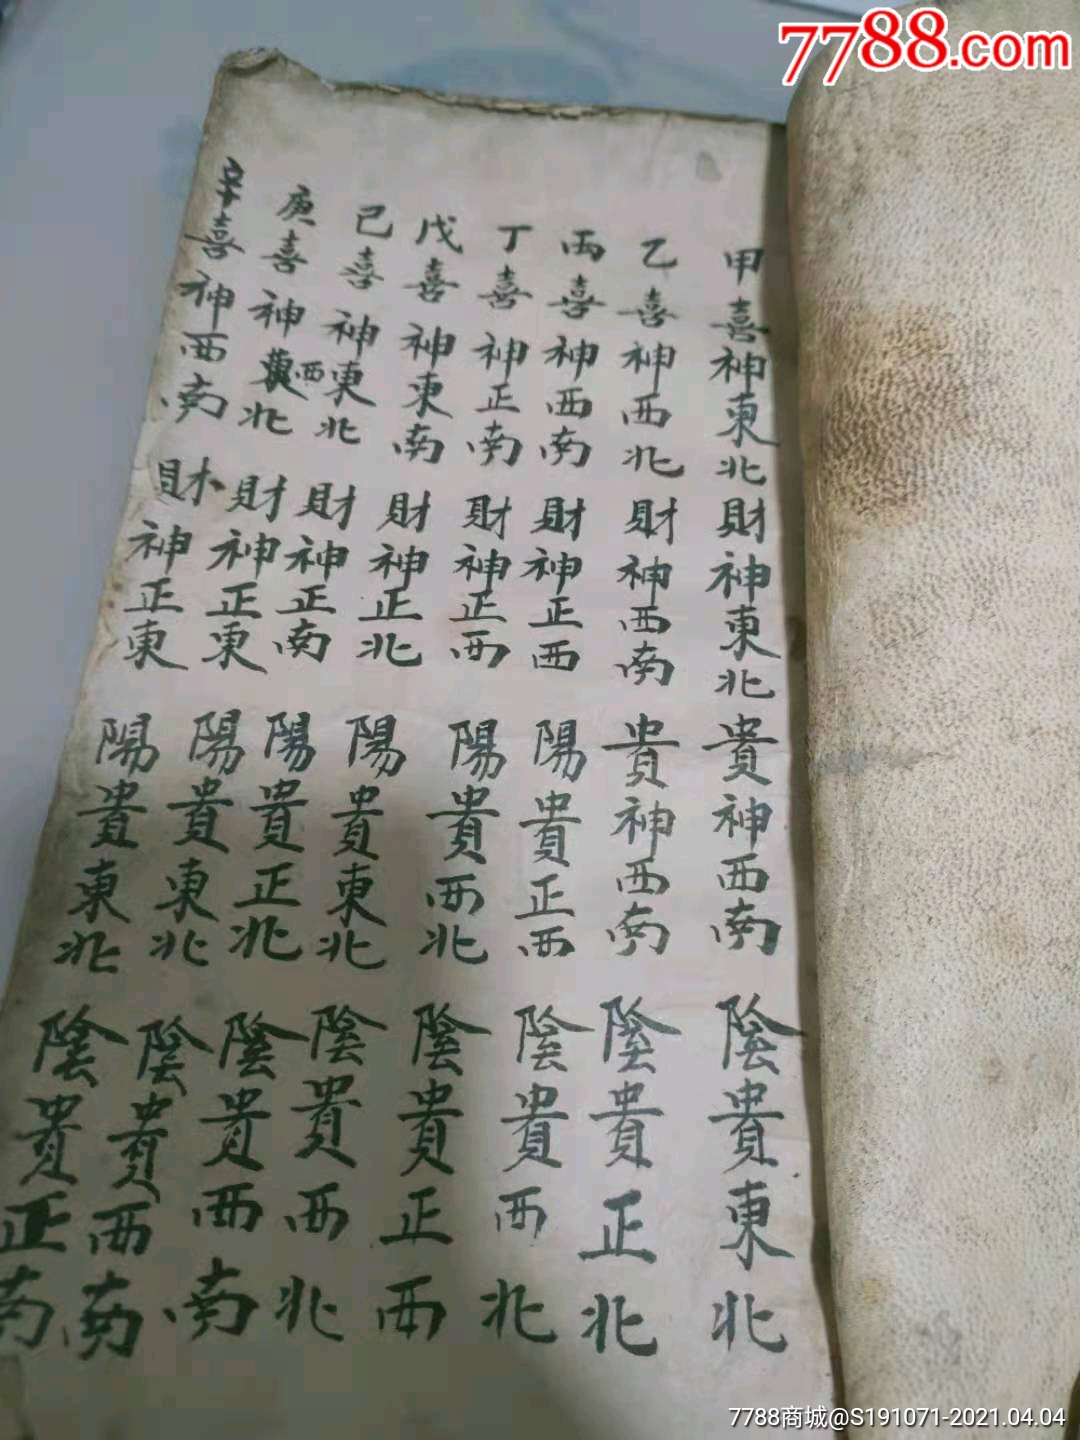 7788.com
甲喜神東北財神東北貴神西南陰貴東北
乙喜神西北財神西南貴神西南陰貴正北
丙喜神西南財神正西陽貴正西陰貴西北
丁喜神正南財神正西陽貴西北陰貴正西
戊喜神東南財神正北陽貴東北陰貴西北
己喜神東北財神正南陽貴正北陰貴西南
庚喜神西北財神正東陽貴東北陰貴西南
辛喜神西南財神正東陽貴東北陰貴正南
7788商城@S191071-2021.04.04